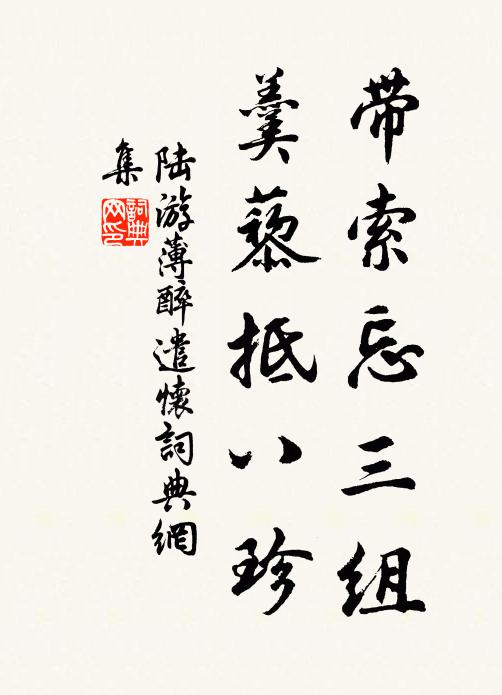 带索忘三组
羹藜抵八珍
陆游薄醉遣懷詞典網
集
詞典
网印